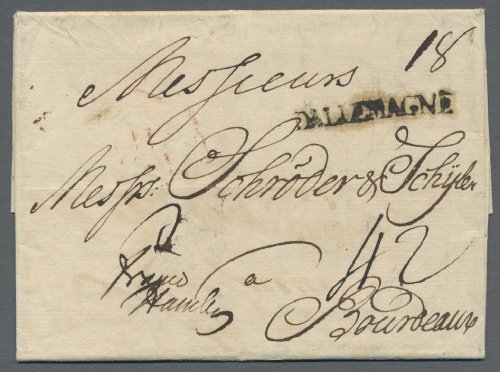 18
Messieurs
D'ALLEMAGNE
Messrs. Schröder & Schÿler
42
franco
Hamb
a
Bourdeaux